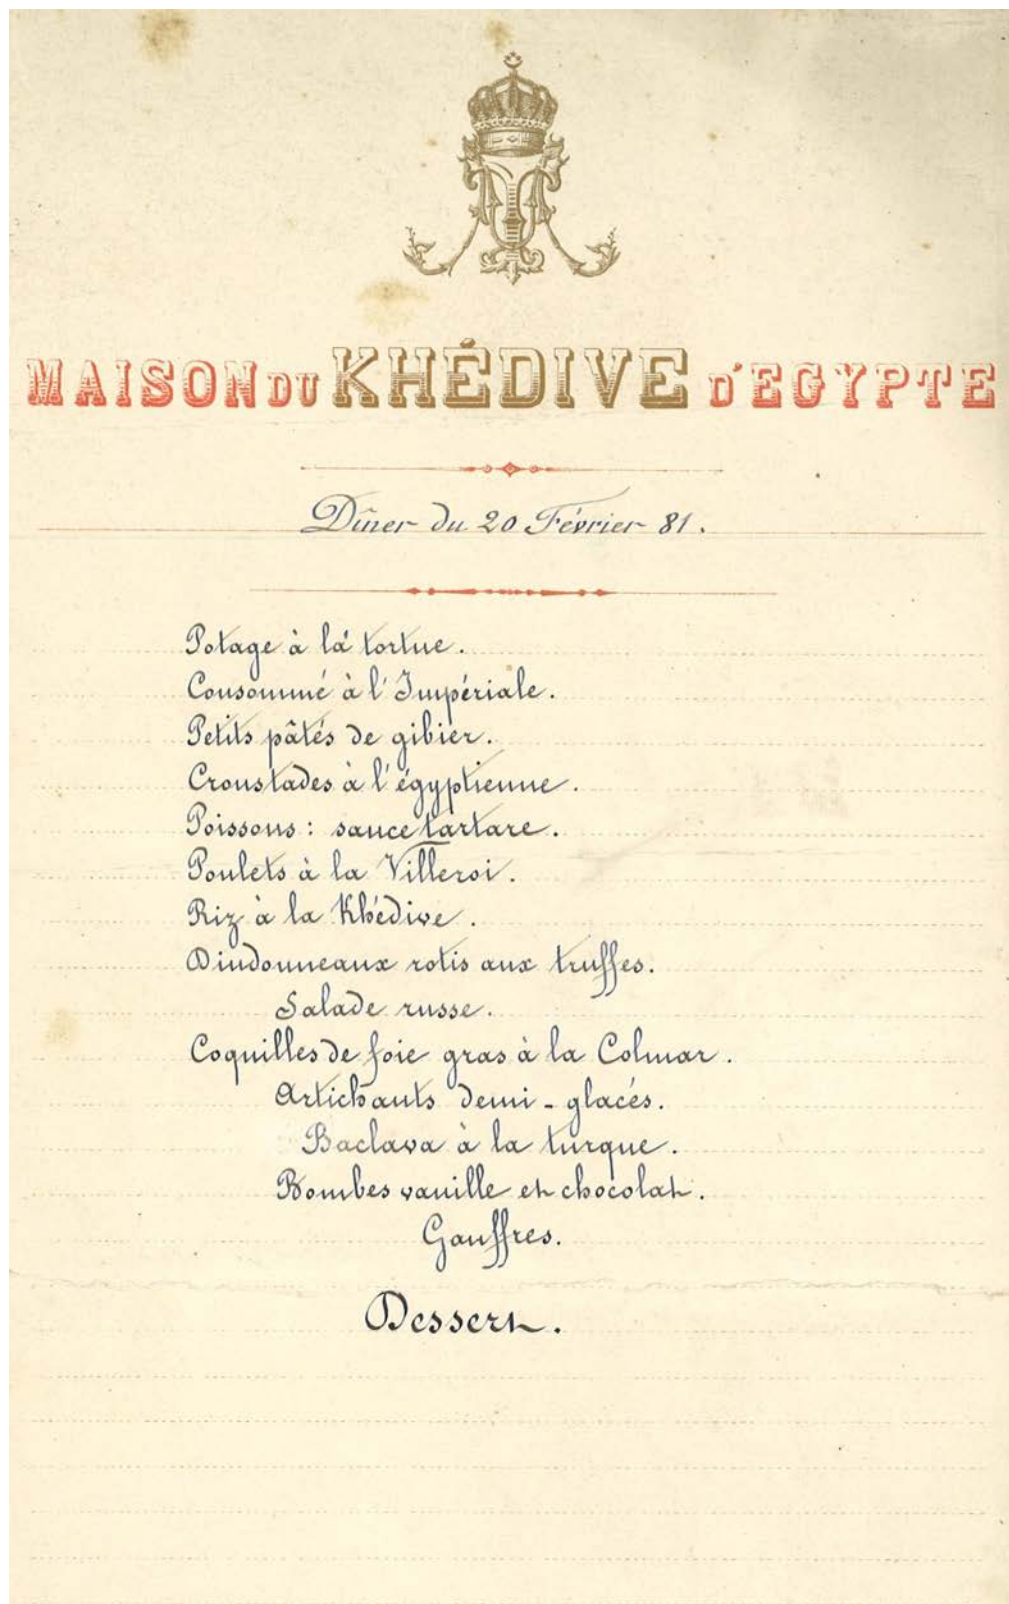 MAISON DU KHÉDIVE D'EGYPTE
Dîner du 20 Février 81.
Potage à la tortue.
Consommé à l'Impériale.
Petits pâtés de gibier.
Croustades à l'égyptienne.
Poissons: sauce tartare.
Poulets à la Villeroi.
Riz à la Khédive.
Dindonneaux rotis aux truffes.
Salade russe.
Coquilles de foie gras à la Colmar.
Artichauts demi-glacés.
Baclava à la turque.
Bombes vanille et chocolat.
Gauffres.
Dessert.